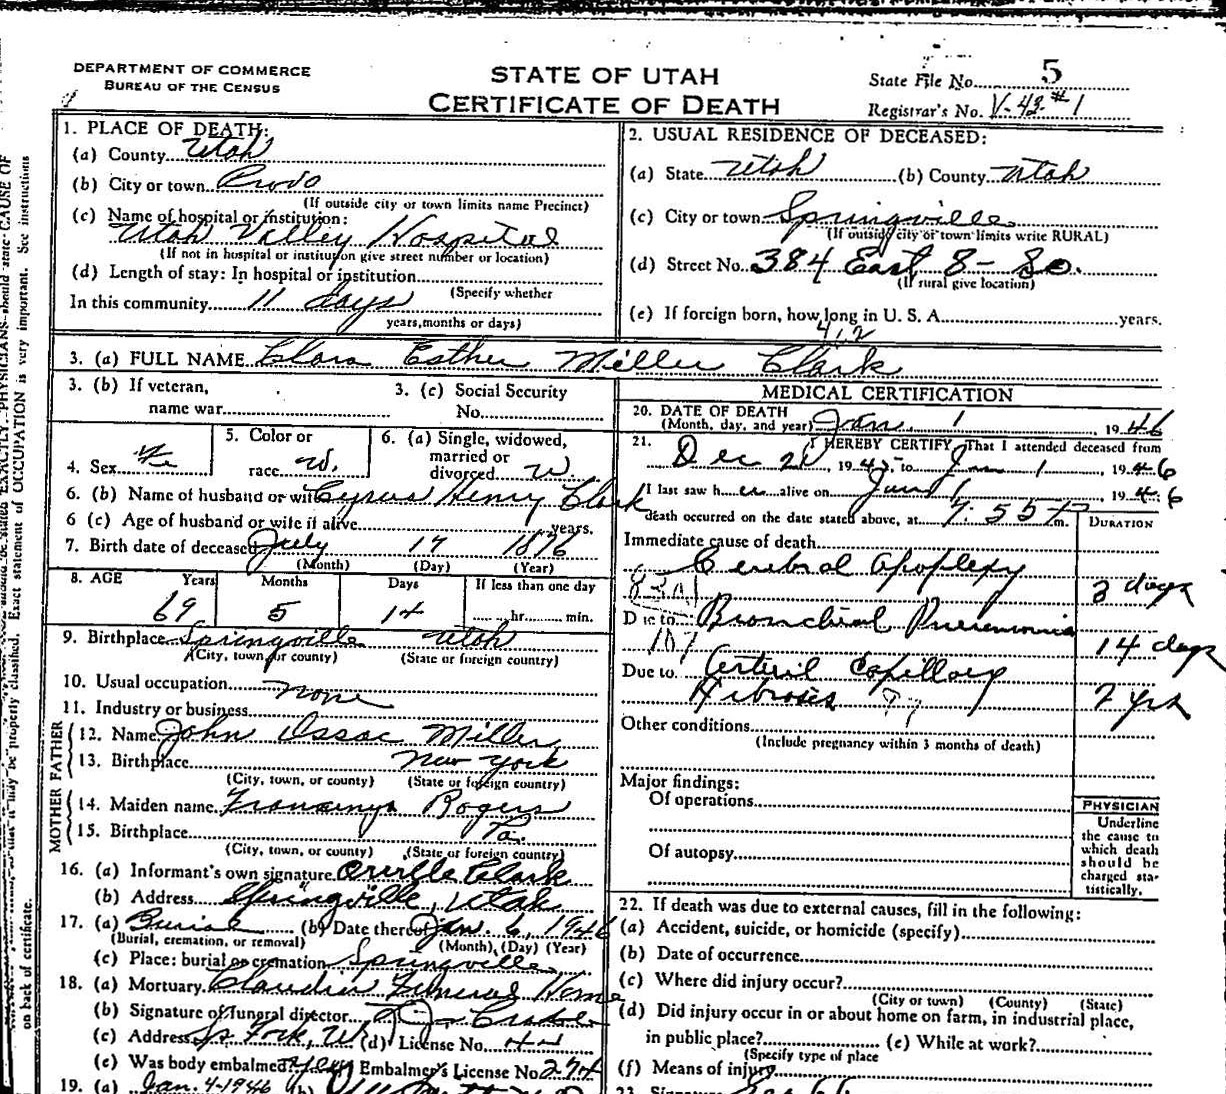 DEPARTMENT OF COMMERCE
BUREAU OF THE CENSUS
STATE OF UTAH
CERTIFICATE OF DEATH
State File No. 5
Registrar's No. V-43 #1
1. PLACE OF DEATH:
(a) County Utah
(b) City or town Provo
(If outside city or town limits name Precinct)
(c) Name of hospital or institution:
Utah Valley Hospital
(If not in hospital or institution give street number or location)
(d) Length of stay: In hospital or institution
(Specify whether
In this community 11 days
years, months or days)
2. USUAL RESIDENCE OF DECEASED:
(a) State Utah (b) County Utah
(c) City or town Springville
(If outside city or town limits write RURAL)
(d) Street No. 384 East 8 - So.
(If rural give location)
(e) If foreign born, how long in U. S. A. years.
412
3. (a) FULL NAME Clara Esther Miller Clark
3. (b) If veteran,
name war
3. (c) Social Security
No.
4. Sex Fe
5. Color or
race W.
6. (a) Single, widowed,
married or
divorced W.
6. (b) Name of husband or wife Cyrus Henry Clark
6 (c) Age of husband or wife if alive years.
7. Birth date of deceased July 17 1876
(Month) (Day) (Year)
8. AGE Years Months Days If less than one day
69 5 14 hr. min.
9. Birthplace Springville Utah
(City, town, or county) (State or foreign country)
10. Usual occupation none
11. Industry or business
FATHER
12. Name John Issac Miller
13. Birthplace New York
(City, town, or county) (State or foreign country)
MOTHER
14. Maiden name Rogers
15. Birthplace Pa.
(City, town, or county) (State or foreign country)
16. (a) Informant's own signature Orville Clark
(b) Address Springville, Utah
17. (a) Burial (b) Date thereof Jan. 6, 1946
(Burial, cremation, or removal) (Month) (Day) (Year)
(c) Place: burial or cremation Springville
18. (a) Mortuary Claudin Funeral Home
(b) Signature of funeral director
(c) Address Sp. Fork, U. (d) License No. 44
(e) Was body embalmed? yes Embalmer's License No. 274
19. (a) Jan. 4-1946 (b)
MEDICAL CERTIFICATION
20. DATE OF DEATH
(Month, day, and year) Jan. 1, 1946
21. I HEREBY CERTIFY, That I attended deceased from
Dec 21, 1945, to Jan 1, 1946
I last saw her alive on Jan 1, 1946
death occurred on the date stated above, at 7:55 P m.
DURATION
Immediate cause of death
Cerebral Apoplexy 3 days
83A1
Due to Bronchial Pneumonia 14 days
107
Due to Arteriol Capillary
Fibrosis 97 2 yrs
Other conditions
(Include pregnancy within 3 months of death)
Major findings:
Of operations
Of autopsy
PHYSICIAN
Underline
the cause to
which death
should be
charged sta-
tistically.
22. If death was due to external causes, fill in the following:
(a) Accident, suicide, or homicide (specify)
(b) Date of occurrence
(c) Where did injury occur?
(City or town) (County) (State)
(d) Did injury occur in or about home on farm, in industrial place,
in public place? (e) While at work?
(Specify type of place
(f) Means of injury
23. Signature
PHYSICIANS should state CAUSE OF
Exact statement of OCCUPATION is very important. See instructions
on back of certificate.